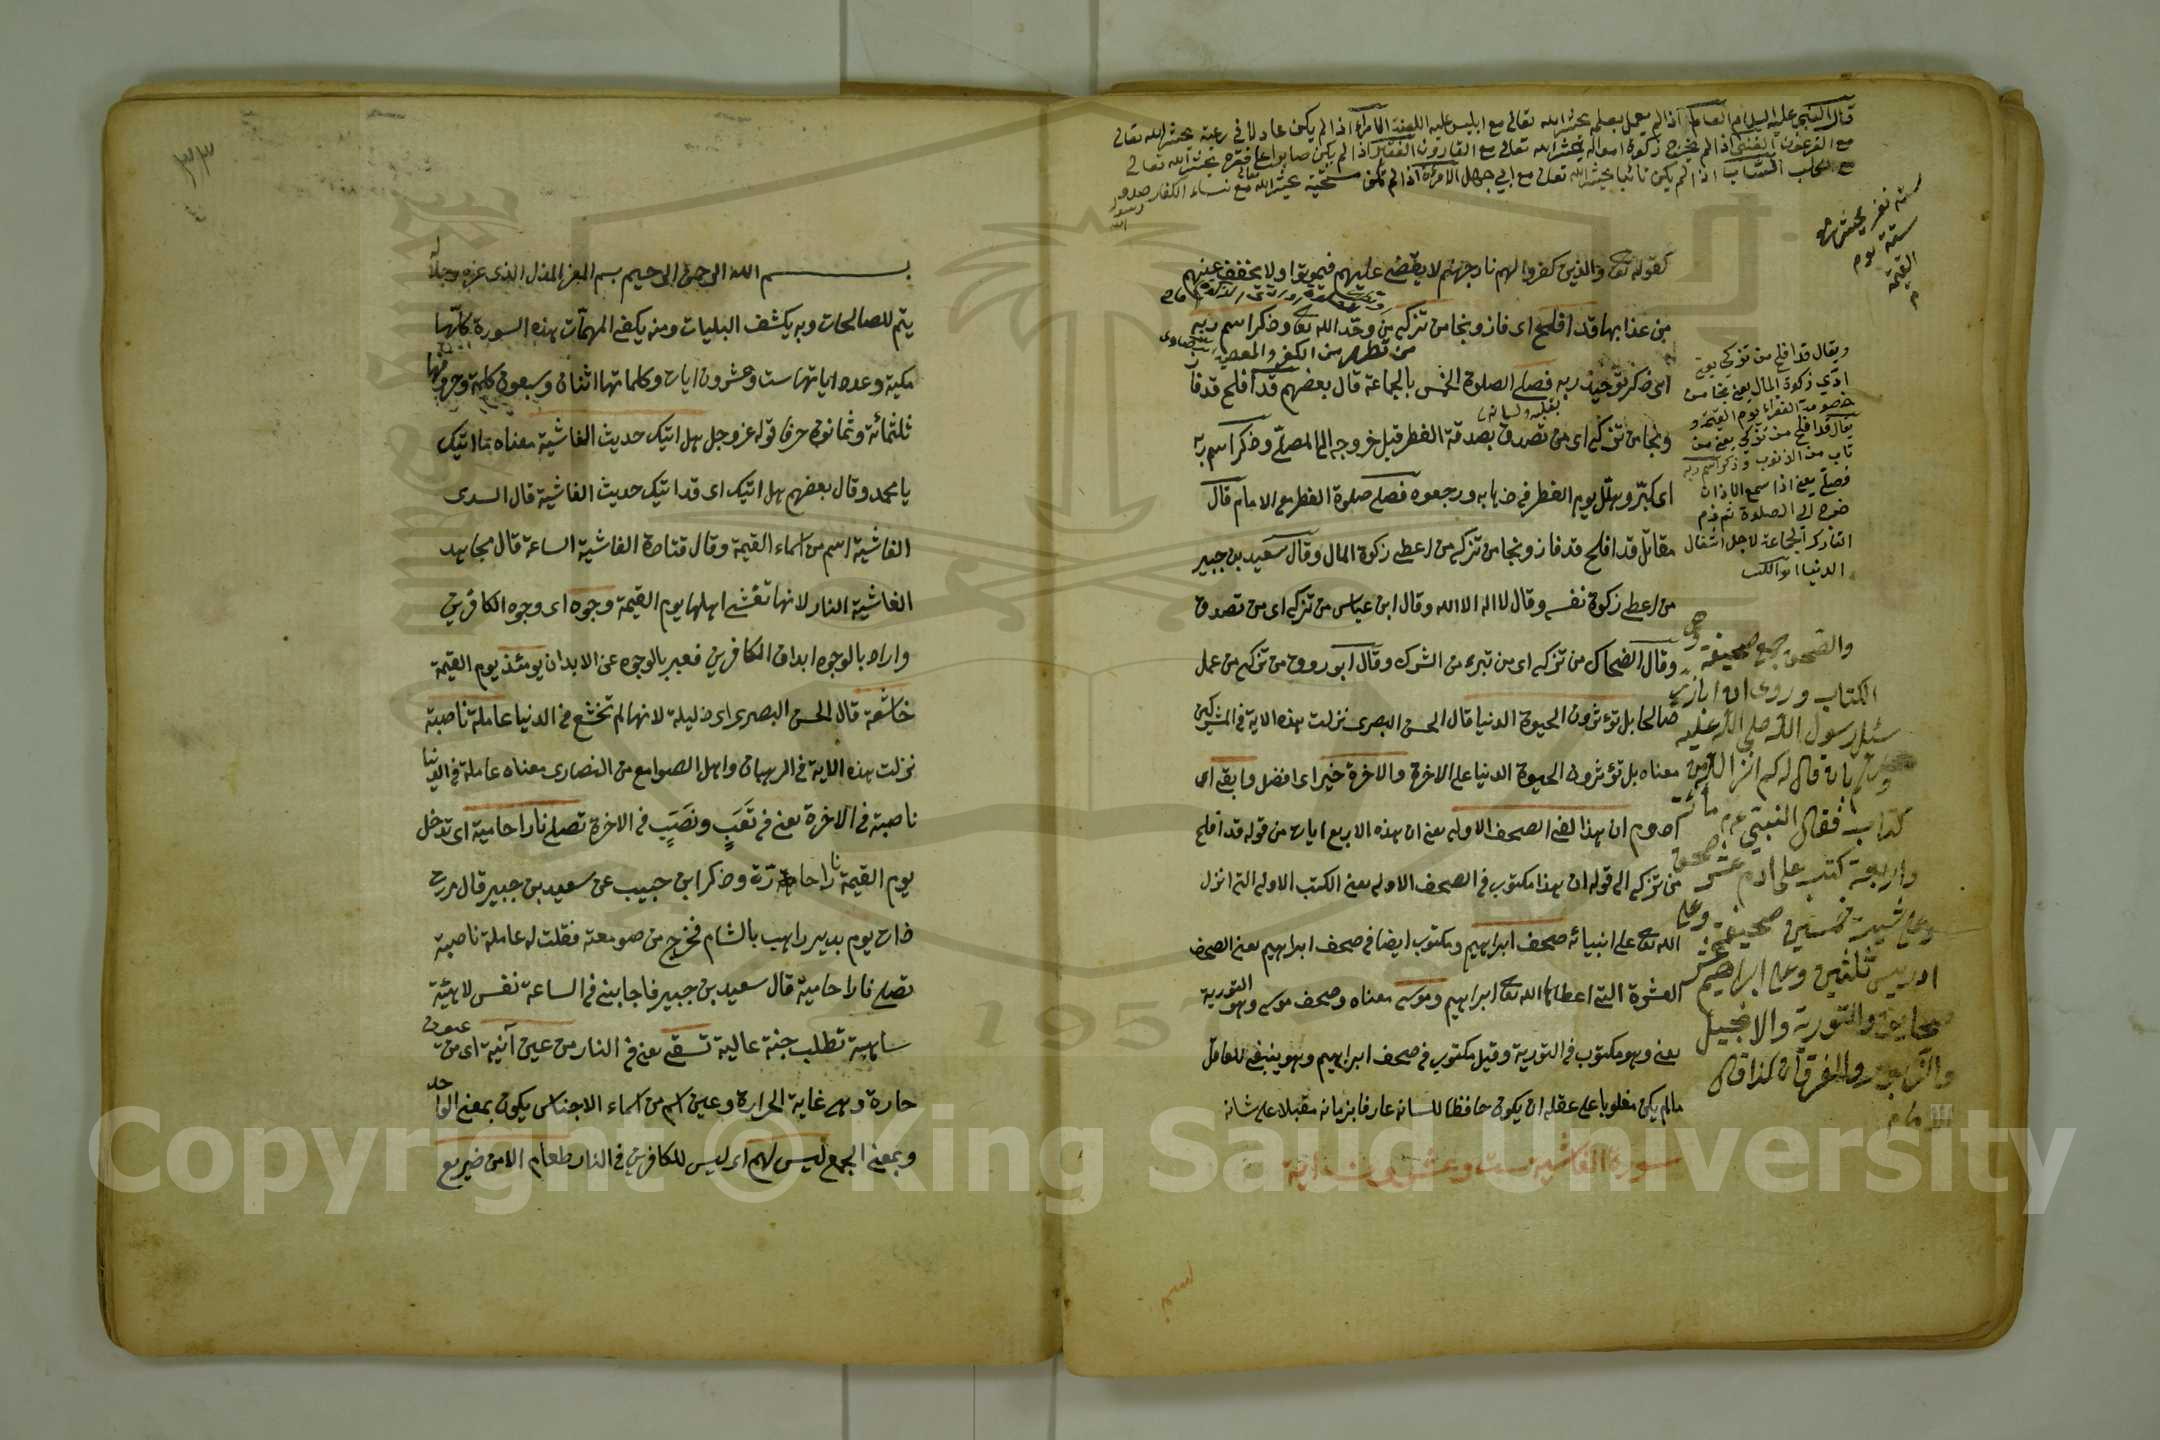 قال النبي عليه السلام العالم اذا لم يعمل بعلمه يحشر الله تعالى مع ابليس عليه اللعنة الامراء اذا لم يكن عادلا في رعيته يحشر الله تعالى
مع الفرعون الغني اذا لم يخرج زكوة امواله يحشر الله تعالى مع القارون الفقير اذا لم يكن صابرا على فقره يحشر الله تعالى
مع الشاب اذا لم يكن تائبا يحشر الله تعالى مع ابي جهل الامرأة اذا لم تكن يحشر الله تعالى مع نساء الكفار صدق
رسول
الله
ستة نفر يحشرهم
ستة يوم
القيمة
كقوله تعالى والذين كفروا لهم نار جهنم لا يقضى عليهم فيموتوا ولا يخفف عنهم
من عذابها قد افلح اى فاز ونجا من تزكى من وحد الله تعالى وذكر اسم ربه
من تطهر من الكفر والمعصية
اى ذكر توحيد ربه فصلى الصلوة الخمس بالجماعة قال بعضهم قد افلح قد فاز
بقلبه ولسانه
ونجا من تزكى اى من تصدق بصدقة الفطر قبل خروجه الى المصلى وذكر اسم ربه
اى كبر وهلل يوم الفطر في ذهابه ورجعوه فصلى صلوة الفطر مع الامام قال
مقاتل قد افلح قد فاز ونجا من تزكى من اعطى زكوة المال وقال سعيد بن جبير
من اعطى زكوة نفسه وقال لا اله الا الله وقال ابن عباس من تزكى اى من تصدق
وقال الضحاك من تزكى اى من تبرء من الشرك وقال ابو روح من تزكى من عمل
صالحا بل تؤثرون الحيوة الدنيا قال الحسن البصرى نزلت هذه الاية في المشركين
معناه بل تؤثرون الحيوة الدنيا على الاخرة والاخرة خير اى افضل وابقى اى
ادوم ان هذا لفى الصحف الاولى يعنى ان هذه الاربع ايات من قوله قد افلح
من تزكى الى قوله ان هذا مكتوب في الصحف الاولى يعنى الكتب الاولى التى انزل
الله تعالى على انبيائه صحف ابراهيم ومكتوب ايضا في صحف ابراهيم يعنى الصحف
العشرة التى اعطاها الله تعالى ابراهيم وموسى معناه وصحف موسى وهو التورية
يعنى وهو مكتوب في التورية وقيل مكتوب في صحف ابراهيم وهو ينبغى للعاقل
مالم يكن مغلوبا على عقله ان يكون حافظا للسانه عارفا بزمانه مقبلا على شانه
سورة الغاشية ست وعشرون اية
ويقال قد افلح من تزكى يعنى
ادى زكوة المال يعنى نجا من
خصومة الفقراء يوم القيمة و
يقال قد افلح من تزكى يعنى من
تاب من الذنوب وذكر اسم ربه
فصلى يعنى اذا سمع الاذان
خرج الى الصلوة ثم ذم
التارك الجماعة لاجل اشغال
الدنيا ابو الليث
والصحف جمع صحيفة وهى
الكتاب وروى ان ابا ذر
سئل رسول الله صلى الله عليه
وسلم بان قال له كم انزل الله من
كتاب فقال النبي عم مائة
واربعة كتب على ادم عشر صحف
وعلى شيث خمسين صحيفة وعلى
ادريس ثلثين وعلى ابراهيم عشر
صحايف والتورية والانجيل
والزبور والفرقان كذا قال
الامام
بسم الله الرحمن الرحيم بسم المعز المذل الذى عزه وجلاله
يتم للصالحات وبه يكشف البليات ومنه يكفى المهمات هذه السورة كلها
مكية وعدد اياتها ست وعشرون ايات وكلماتها اثنان وسبعون كلمة وحروفها
ثلثمائة وثمانون حرفا قوله عز وجل هل اتيك حديث الغاشية معناه ما اتيك
يا محمد وقال بعضهم هل اتيك اى قد اتيك حديث الغاشية قال السدى
الغاشية اسم من اسماء القيمة وقال قتادة الغاشية الساعة قال مجاهد
الغاشية النار لانها تغشى اهلها يوم القيمة وجوه اى وجوه الكافرين
واراد بالوجوه ابدان الكافرين فعبر بالوجوه عن الابدان يومئذ يوم القيمة
خاشعة قال الحسن البصرى اى ذليلة لانها لم تخشع في الدنيا عاملة ناصبة
نزلت هذه الاية في الرهبان واهل الصوامع من النصارى معناه عاملة في الدنيا
ناصبة في الاخرة يعنى في تَعَبٍ ونَصَبٍ في الاخرة تصلى نارا حامية اى تدخل
يوم القيمة نارا حارة وذكر ابن حبيب عن سعيد بن جبير قال مررت
ذات يوم بدير راهب بالشام فخرج من صومعته فقلت له عاملة ناصبة
تصلى نارا حامية قال سعيد بن جبير فاجابنى في الساعة نفس لاهية
ساهية تطلب جنة عالية تسقى يعنى في النار من عين آنية اى من عيون
حارة وهى غاية الحرارة وعين اسم من اسماء الاجناس يكون بمعنى الواحد
وبمعنى الجمع ليس لهم اى ليس للكافرين في النار طعام الا من ضريع
Copyright © King Saud University
1957